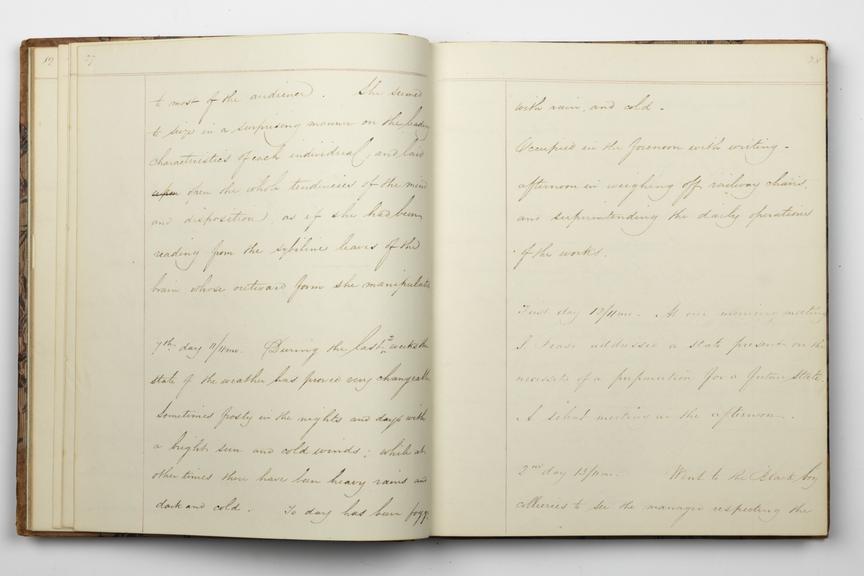 27
to most of the audience. She seemed
to seize in a surprising manner on the leading
characteristics of each individual, and laid
upon open the whole tendencies of the mind
and disposition, as if she had been
reading from the sybiline leaves of the
brain whose outward form she manipulated
7th day 11/11mo. During the last 2 weeks the
state of the weather has proved very changeable
Sometimes frosty in the nights and days with
a bright sun and cold winds; while at
other times there have been heavy rains and
dark and cold. To day has been foggy
28
with rain and cold.
Occupied in the forenoon with writing.
afternoon in weighing off railway chairs,
and superintending the daily operations
of the works.
First day 12/11mo. At our morning meeting
I Pease addressed a state present on the
necessity of a preparation for a future state.
A silent meeting in the afternoon.
2nd day 13/11mo. Went to the Black boy
collieries to see the manager respecting the